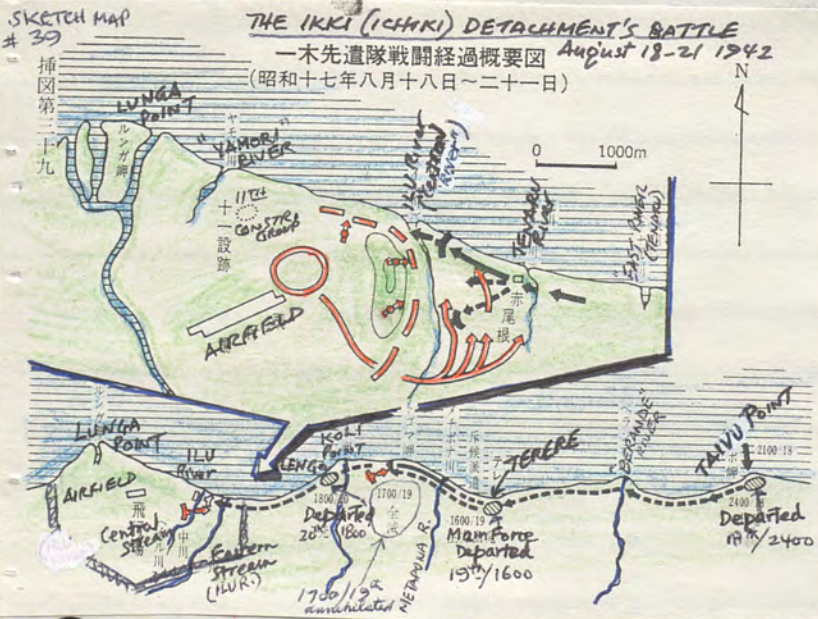 SKETCH MAP
# 39
THE IKKI (ICHIKI) DETACHMENT'S BATTLE
August 18-21 1942
一木先遣隊戦闘経過概要図
(昭和十七年八月十八日〜二十一日)
挿図第三十九
N
0 1000m
LUNGA
POINT
ルンガ岬
"YAMORI"
RIVER
11TH
CONSTR
GROUP
十一設跡
AIRFIELD
ILU River
RIVER")
TENARU
RIVER
赤尾根
"EAST
(TENARU)
LUNGA
POINT
AIRFIELD
飛
場
ILU
River
Central
Stream
中川
Eastern
Stream
(ILU R.)
LENGO
KOLI
POINT
Departed
20th 1800
1700/19
全滅
1700/19th
annihilated
METAPONA R.
斥候派遣
TERERE
1600/19
Main Force
Departed
19th/1600
"BERANDE"
RIVER
TAIVU POINT
2100/18
2400/18
Departed
18th/2400